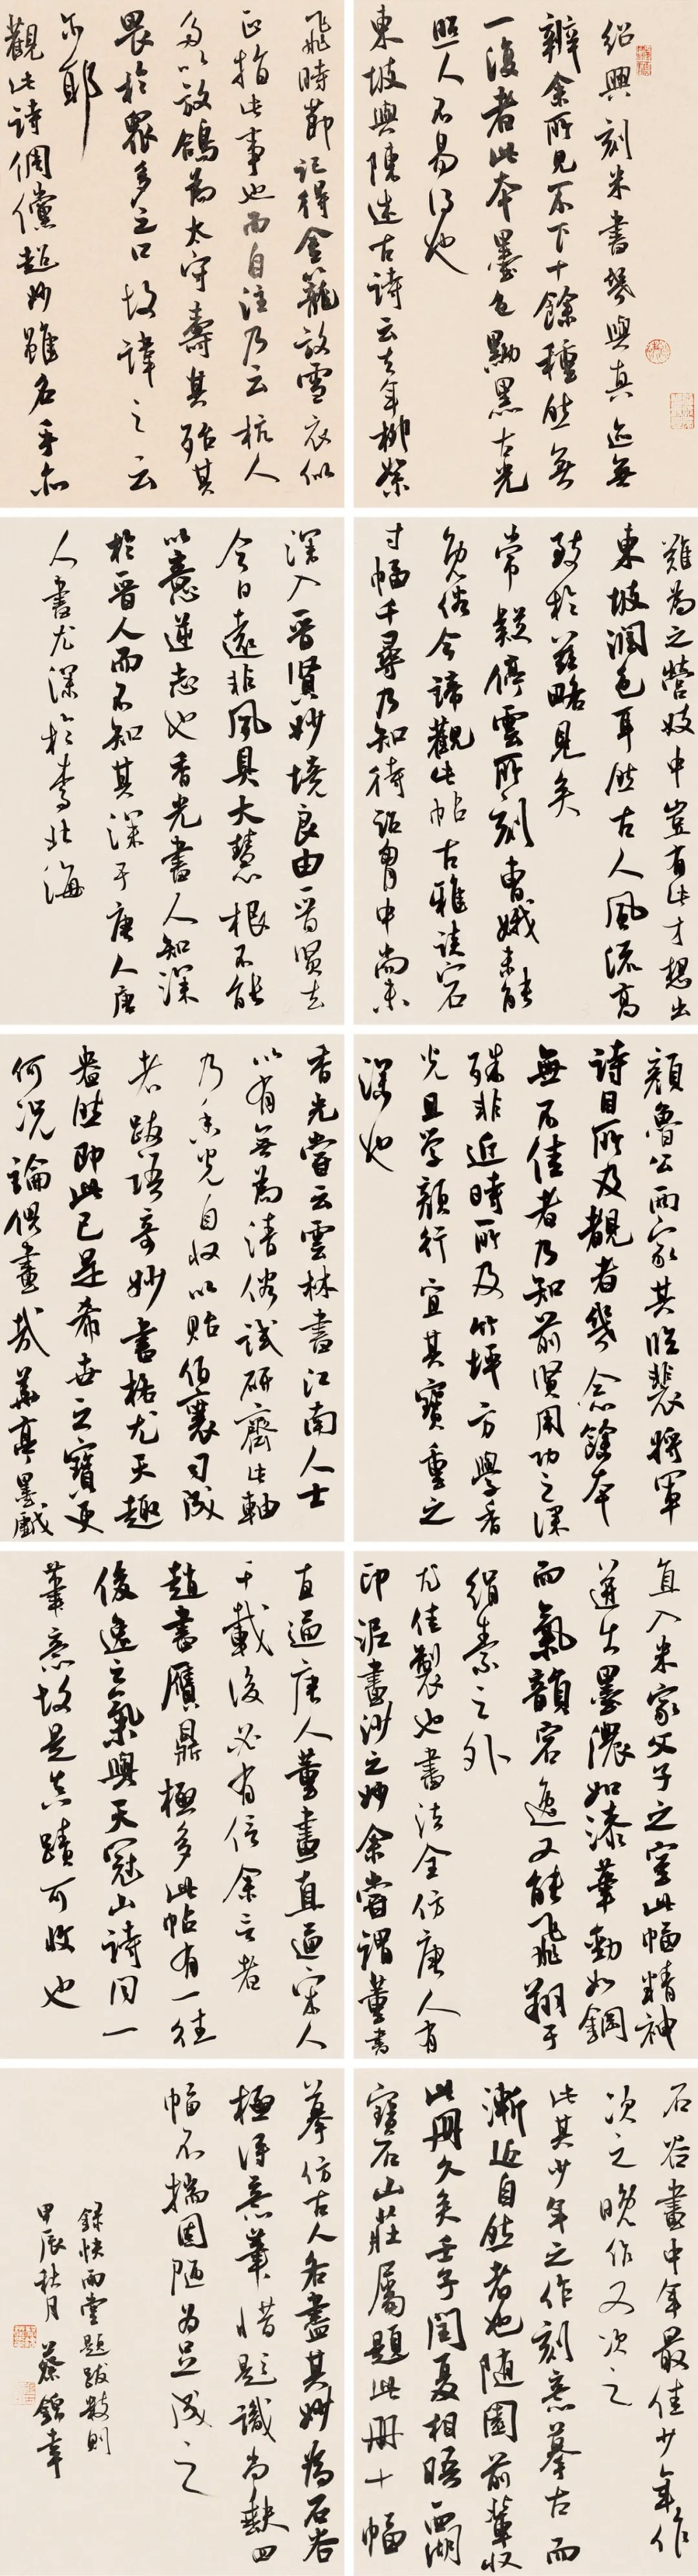 紹興刻米書幾與真迹無
辨余所見不下十餘種然無
一復者此本墨色黝黑古光
照人不易得也
東坡與陳述古詩云去年柳絮
飛時節記得金籠放雪衣似
正指此事也而自注乃云杭人
多以放鴿為太守壽其殆其
畏於眾多之口故諱之云
尔耶
觀此詩倜儻超妙雖名手亦
難為之營妓中豈有此才想出
東坡潤色耳然古人風流高
致於茲略見矣
常疑停雲所刻曹娥未能
免俗今諦觀此帖古雅該宕
寸幅千尋乃知待詔胷中尚未
深入晉賢妙境良由晉賢去
今日遠非風具大慧根不能
以意逆志也香光書人知深
於晉人而不知其深于唐人唐
人書尤深於李北海
顏魯公兩家其臨裴將軍
詩目所及覩者幾念餘本
無不佳者乃知前賢用功之深
殊非近時所及竹坪方學香
光且學顏行宜其寶重之
深也
香光嘗云雲林畫江南人士
以有無為清俗識研齋此軸
乃香光自收以貽伯襄司成
者跋語奇妙書格尤天趣
盎然即此已是希世之寶更
何況論倶畫哉華亭墨戲
直入米家父子之室此幅精神
迸出墨濃如漆筆勁如鋼
而氣韻宕逸又能飛翔于
絹素之外
尤佳製也書法全仿唐人有
印泥畫沙之妙余嘗謂董書
直逼唐人董畫直逼宋人
千載後必有信余言者
趙書贋鼎極多此帖有一往
俊逸之氣與天冠山詩同一
筆意故是真蹟可收也
石谷畫中年最佳少年作
次之晚作又次之
此其少年之作刻意摹古而
漸近自然者也随園前輩收
此冊久矣壬子閏夏相晤西湖
寶石山莊屬題此冊十幅
摹仿古人各盡其妙為石谷
極得意筆惜題識尚缺四
幅不揣固陋为足成之
録快雨堂題跋數則
甲辰秋月 蔡錦幸